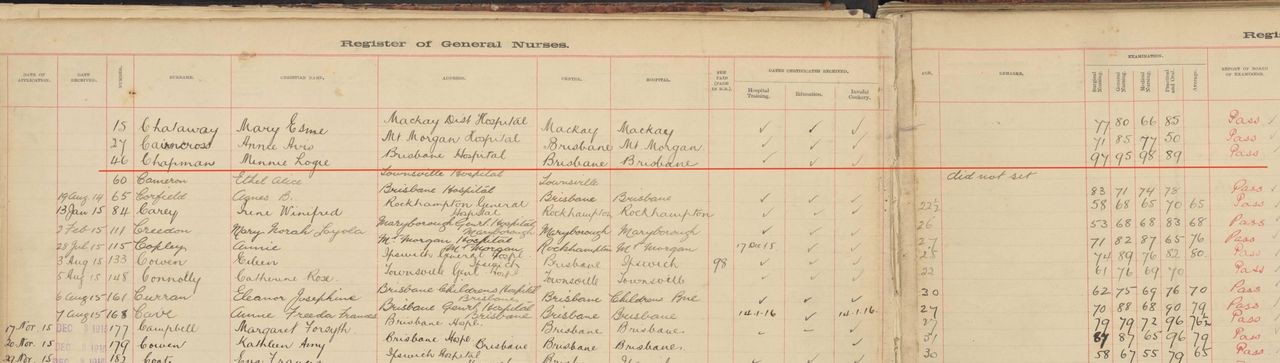 Register of General Nurses.
Regis
DATE OF APPLICATION. DATE RECEIVED. NUMBER. SURNAME. CHRISTIAN NAME. ADDRESS. CENTRE. HOSPITAL. FEE PAID DATES CERTIFICATES RECEIVED. AGE. REMARKS. EXAMINATION. REPORT OF BOARD OF EXAMINERS.
Hospital Training. Education. Invalid Cookery. Surgical Nursing. General Nursing. Medical Nursing. Practical and Oral. Average.
15 Chataway Mary Esme Mackay Dist Hospital Mackay Mackay ✓ ✓ ✓ 77 80 66 85 Pass
27 Cairncross Annie Avis Mt Morgan Hospital Brisbane Mt Morgan ✓ ✓ ✓ 71 85 77 50 Pass
46 Chapman Minnie Logie Brisbane Hospital Brisbane Brisbane ✓ ✓ ✓ 97 95 98 89 Pass
60 Cameron Ethel Alice Townsville Hospital Townsville did not sit
19 Aug 14 65 Corfield Agnes B. Brisbane Hospital Brisbane Brisbane ✓ ✓ ✓ 83 71 74 78 Pass
13 Jan 15 84 Carey Irene Winifred Rockhampton General Hospital Rockhampton Rockhampton ✓ ✓ ✓ 22½ 58 68 65 70 65 Pass
2 Feb 15 111 Creedon Mary Norah Loyola Maryborough Genrl Hospital Maryborough Maryborough Maryborough ✓ ✓ ✓ 26 53 68 68 83 68 Pass
28 Jul 15 115 Copley Annie Mt Morgan Hospital Mt Morgan Rockhampton Mt Morgan 17 Dec 15 ✓ ✓ 27 71 82 87 65 76 Pass
3 Aug 15 133 Cowen Eileen Ipswich General Hospl. Ipswich Brisbane Ipswich 98 ✓ ✓ ✓ 25 74 89 76 82 80 Pass
5 Aug 15 148 Connolly Catherine Rose Townsville Genl Hospl Townsville Townsville ✓ ✓ ✓ 22 61 76 69 70 Pass
6 Aug 15 161 Curran Eleanor Josephine Brisbane Childrens Hospital Brisbane Brisbane Childrens Bne ✓ ✓ ✓ 30 62 75 69 76 70 Pass
7 Aug 15 168 Cave Annie Freeda Frances Brisbane Genrl Hospital Brisbane Brisbane Brisbane 14.1.16 ✓ 14.1.16. 27 70 88 68 90 79 Pass
17 Nov. 15 DEC 3 1915 177 Campbell Margaret Forsyth Brisbane Hospl. Brisbane Brisbane 27 79 79 72 96 Pass
20 Nov. 15 DEC 1915 179 Cowen Kathleen Amy Brisbane Hospl. Brisbane Brisbane Brisbane 87 65 96 79 Pass
Ipswich Hospital 30 58 67 55 79 65 Pass